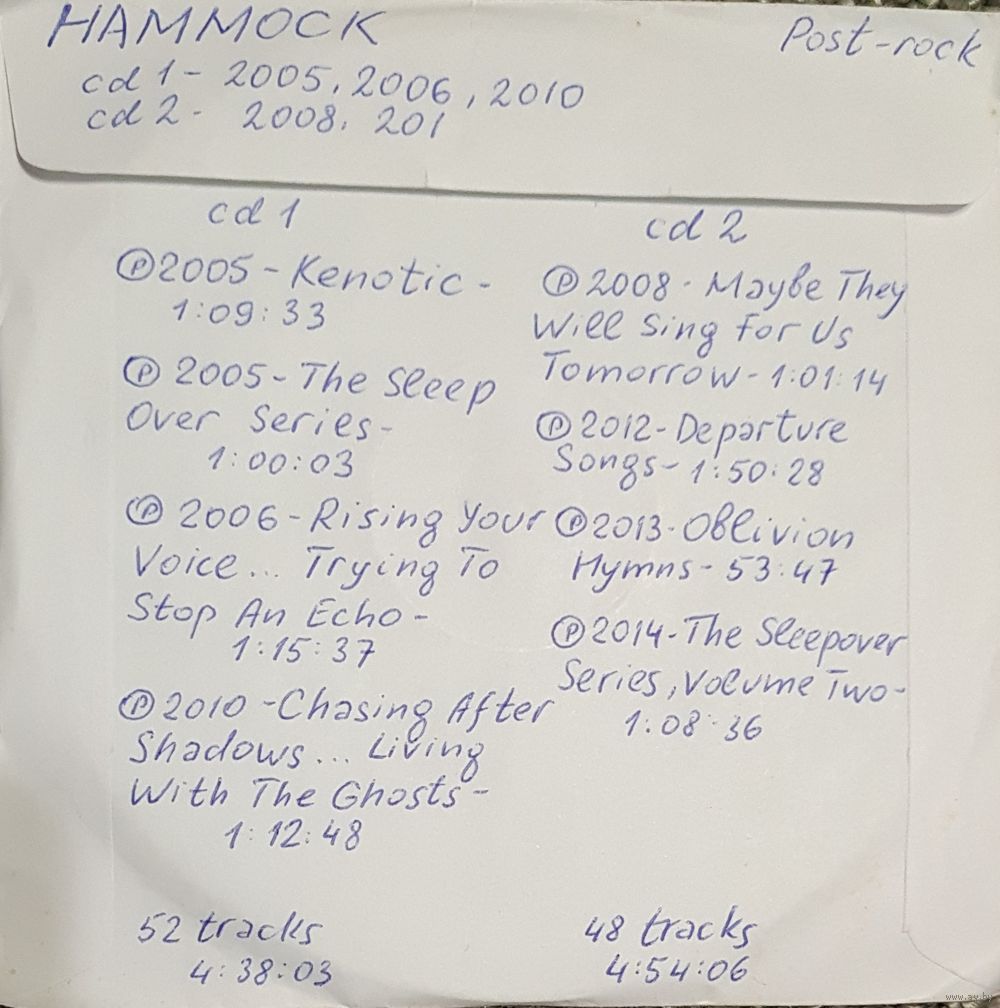 HAMMOCK
Post-rock
cd 1 - 2005, 2006, 2010
cd 2 - 2008. 201
cd 1
Ⓟ2005 - Kenotic -
1:09:33
Ⓟ 2005 - The Sleep
Over Series -
1:00:03
Ⓟ 2006 - Rising Your
Voice... Trying To
Stop An Echo -
1:15:37
Ⓟ2010 - Chasing After
Shadows... Living
With The Ghosts -
1:12:48
52 tracks
4:38:03
cd 2
Ⓟ2008 - Maybe They
Will Sing For Us
Tomorrow - 1:01:14
Ⓟ2012 - Departure
Songs - 1:50:28
Ⓟ2013 - Oblivion
Hymns - 53:47
Ⓟ2014 - The Sleepover
Series, Volume Two -
1:08:36
48 tracks
4:54:06
www.ay.by